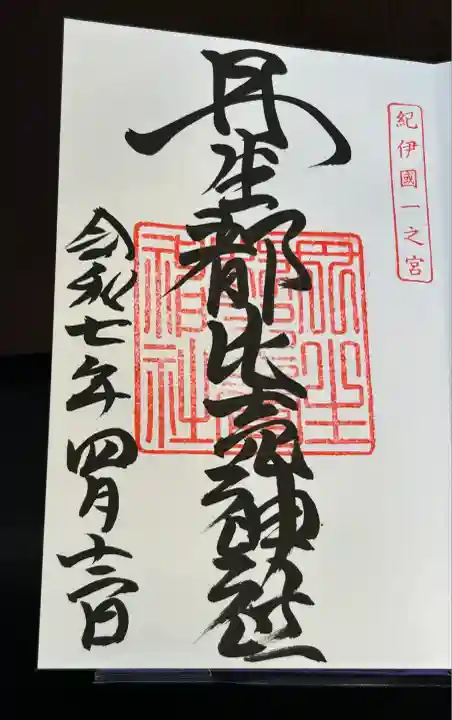 紀伊國一之宮
丹生都比売神社
令和七年四月十二日